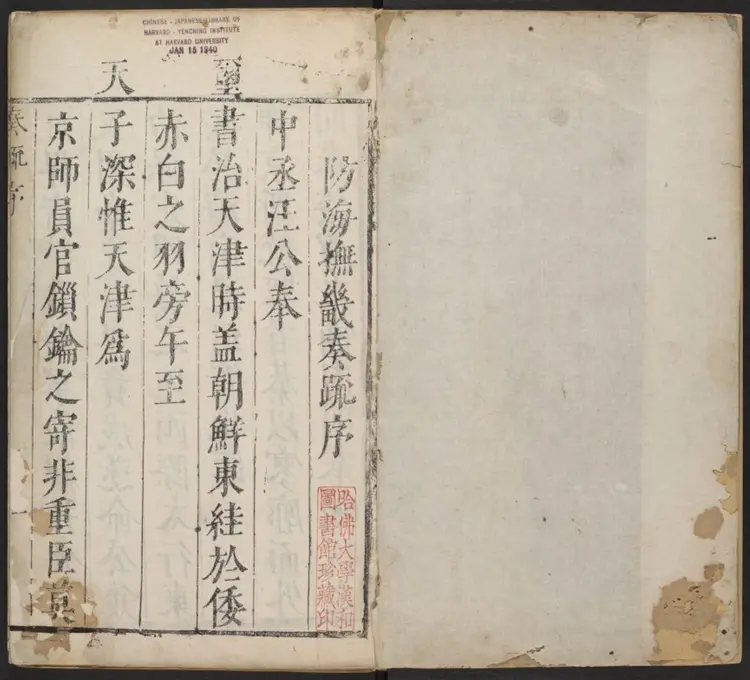 CHINESE - JAPANESE LIBRARY OF
HARVARD - YENCHING INSTITUTE
AT HARVARD UNIVERSITY
JAN 15 1940
防海撫畿奏疏序
中丞汪公奉
璽書治天津時盖朝鮮東絓於倭
赤白之羽旁午至
天子深惟天津爲
京師員官鎖鑰之寄非重臣莫
奏疏序
一
哈佛大學漢和
圖書館珍藏印